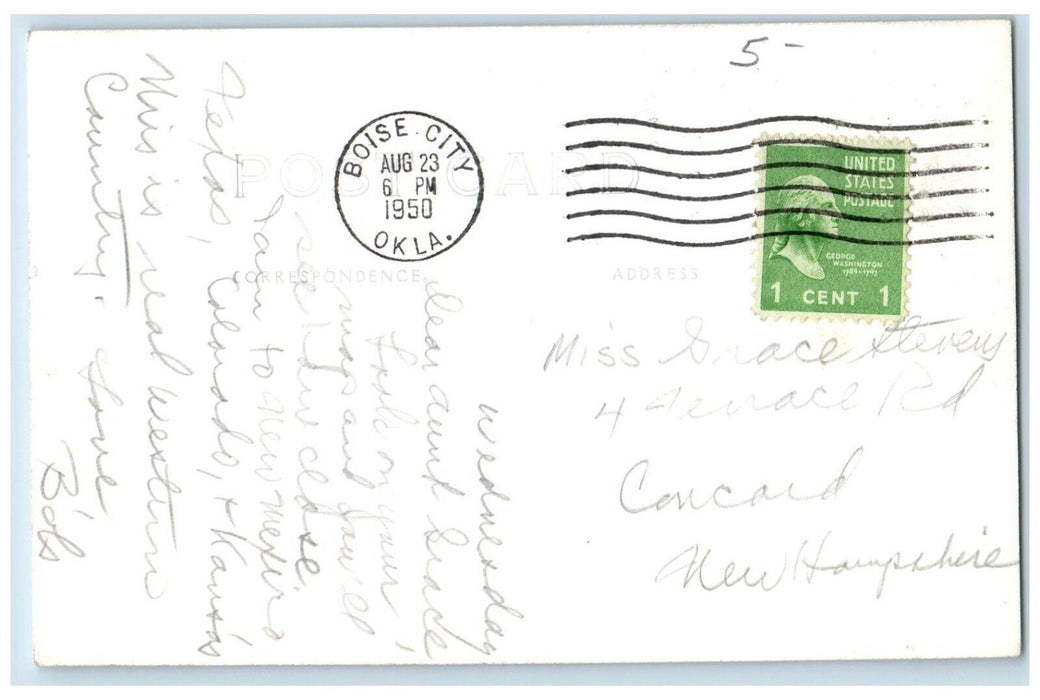 5-
POST CARD
BOISE CITY
AUG 23
6 PM
1950
OKLA.
UNITED
STATES
POSTAGE
GEORGE
WASHINGTON
1789-1797
1 CENT 1
CORRESPONDENCE
ADDRESS
Miss Grace Stevens
4 Terrace Rd
Concord
New Hampshire
Wednesday
Dear Aunt Grace
Look on your
map and you'll
see how close
I am to New Mexico
Texas, Colorado, + Kansas
This is real western
Country. Love,
Bob